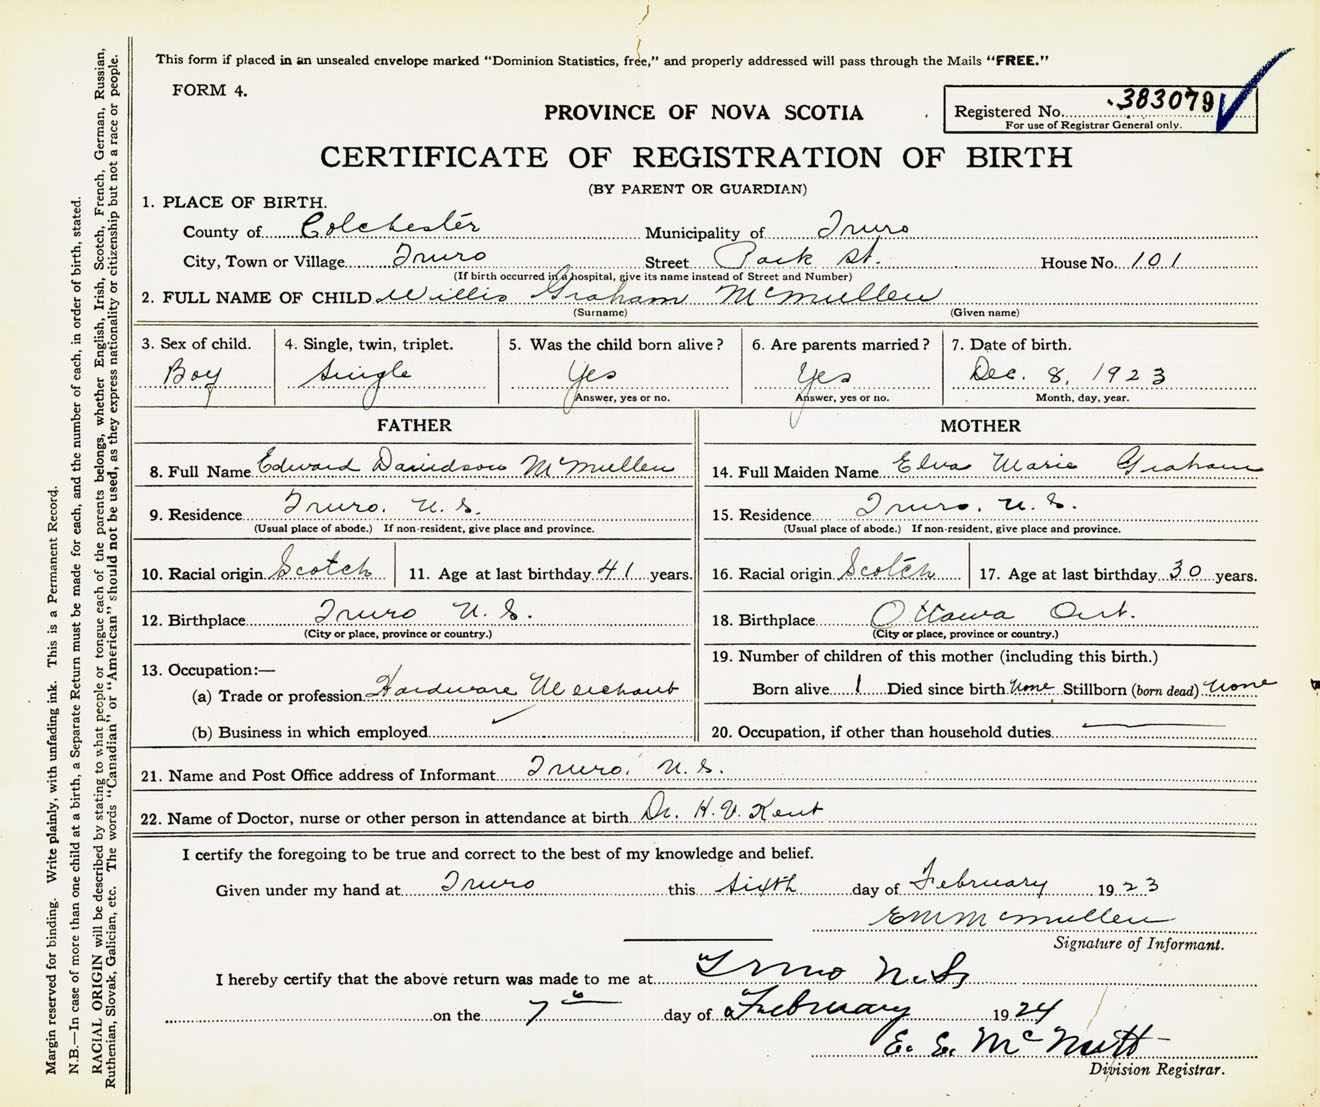 This form if placed in an unsealed envelope marked "Dominion Statistics, free," and properly addressed will pass through the Mails "FREE."
FORM 4.
PROVINCE OF NOVA SCOTIA
Registered No. 383079
For use of Registrar General only.
CERTIFICATE OF REGISTRATION OF BIRTH
(BY PARENT OR GUARDIAN)
1. PLACE OF BIRTH.
County of Colchester Municipality of Truro
City, Town or Village Truro Street Park St. House No. 101
(If birth occurred in a hospital, give its name instead of Street and Number)
2. FULL NAME OF CHILD Willis Graham McMullen
(Surname) (Given name)
3. Sex of child. 4. Single, twin, triplet. 5. Was the child born alive? 6. Are parents married? 7. Date of birth.
Boy Single Yes Yes Dec. 8, 1923
Answer, yes or no. Answer, yes or no. Month, day, year.
FATHER MOTHER
8. Full Name Edward Davidson McMullen 14. Full Maiden Name Elva Marie Graham
9. Residence Truro. N.S. 15. Residence Truro. N.S.
(Usual place of abode.) If non-resident, give place and province. (Usual place of abode.) If non-resident, give place and province.
10. Racial origin Scotch 11. Age at last birthday 41 years. 16. Racial origin Scotch 17. Age at last birthday 30 years.
12. Birthplace Truro N.S. 18. Birthplace Ottawa Ont.
(City or place, province or country.) (City or place, province or country.)
13. Occupation:— 19. Number of children of this mother (including this birth.)
(a) Trade or profession Hardware Merchant Born alive 1 Died since birth None Stillborn (born dead) None
(b) Business in which employed 20. Occupation, if other than household duties
21. Name and Post Office address of Informant Truro. N.S.
22. Name of Doctor, nurse or other person in attendance at birth Dr. H.V. Kent
I certify the foregoing to be true and correct to the best of my knowledge and belief.
Given under my hand at Truro this sixth day of February 1923
EMMcmullen
Signature of Informant.
I hereby certify that the above return was made to me at Truro N.S.
on the 7th day of February 1924
E. E. McNutt
Division Registrar.
Margin reserved for binding. Write plainly, with unfading ink. This is a Permanent Record.
N.B.—In case of more than one child at a birth, a Separate Return must be made for each, and the number of each, in order of birth, stated.
RACIAL ORIGIN will be described by stating to what people or tongue each of the parents belongs, whether English, Irish, Scotch, French, German, Russian,
Ruthenian, Slovak, Galician, etc. The words "Canadian" or "American" should not be used, as they express nationality or citizenship but not a race or people.